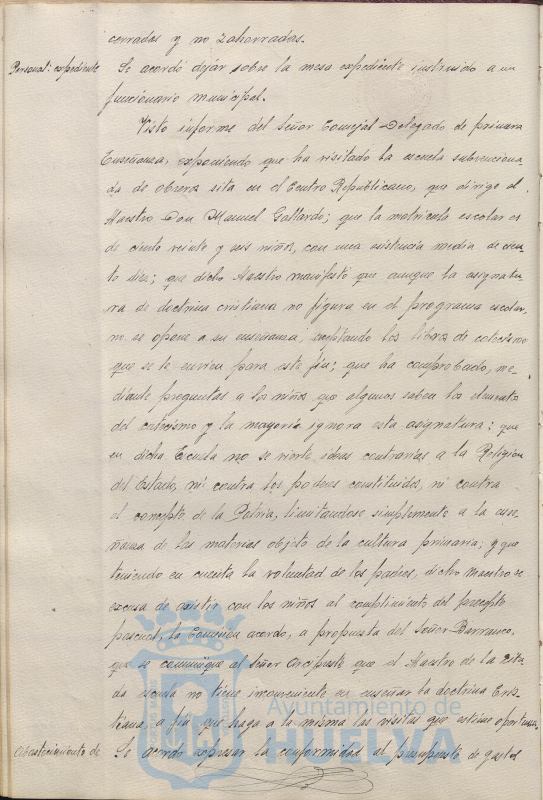 cerradas y no zahorradas.
Personal: expediente Se acordó dejar sobre la mesa expediente instruido a un
funcionario municipal.
Visto informe del Señor Concejal-Delegado de primera
Enseñanza, exponiendo que ha visitado la escuela subvenciona-
da de obreros sita en el Centro Republicano, que dirige el
Maestro Don Manuel Gallardo; que la matrícula escolar es
de ciento veinte y seis niños, con una asistencia media de cien-
to diez; que dicho Maestro manifestó que aunque la asignatu-
ra de doctrina cristiana no figura en el programa escolar,
no se opone a su enseñanza, aceptando los libros de catecismo
que se le envíen para este fin; que ha comprobado, me-
diante preguntas a los niños que algunos saben los elementos
del catecismo y la mayoría ignora esta asignatura; que
en dicha Escuela no se vierte ideas contrarias a la Religión
del Estado, ni contra los poderes constituidos, ni contra
el concepto de la Patria, limitandose simplemente a la ense-
ñanza de las materias objeto de la cultura primaria; y que
teniendo en cuenta la voluntad de los padres, dicho Maestro se
excusa de asistir con los niños al cumplimiento del precepto
pascual, la Comisión acordó, a propuesta del Señor Barranco,
que se comunique al Señor Arcipreste que el Maestro de la cita-
da escuela no tiene inconveniente en enseñar la doctrina Cris-
tiana, a fin que haga a la misma las visitas que estime oportunas.
Abastecimiento de Se acordó expresar la conformidad al presupuesto de gastos
Ayuntamiento de
HUELVA